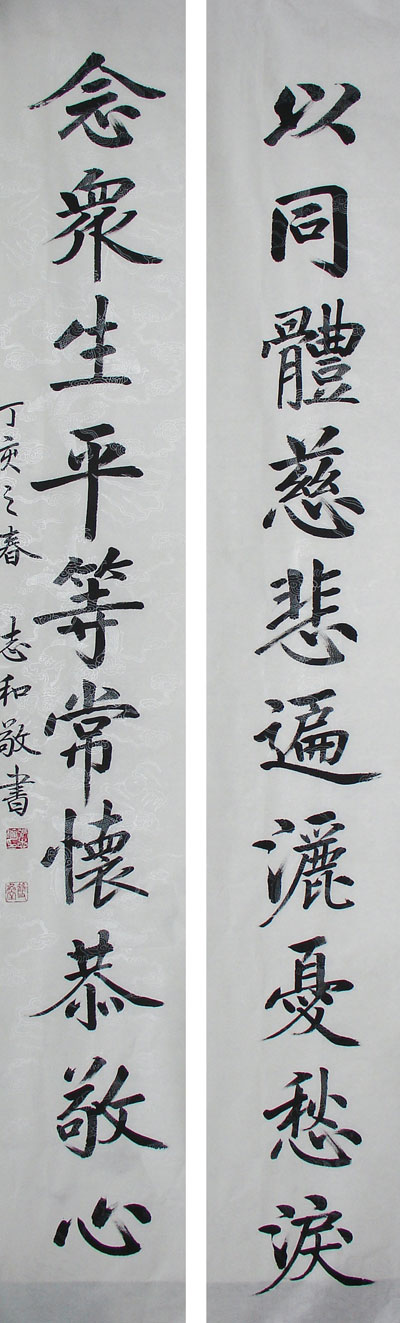 以同體慈悲遍灑憂愁淚
念眾生平等常懷恭敬心
丁亥之春 志和敬書